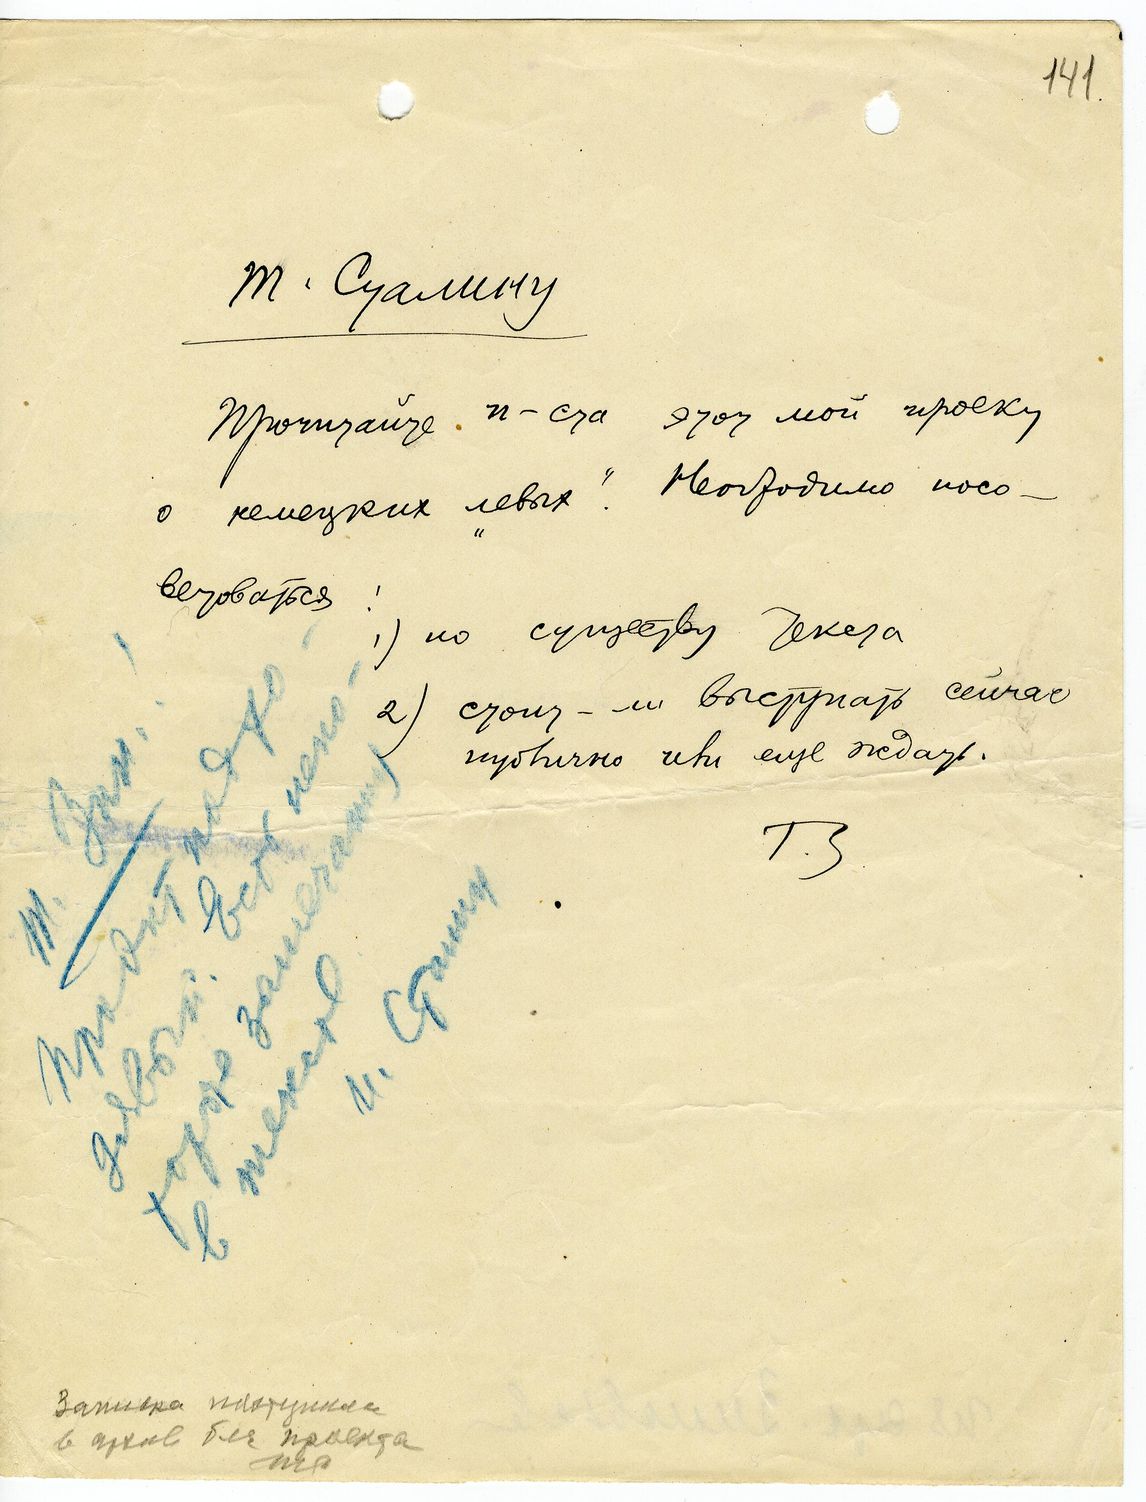 141.
т. Сталину
Прочитайте п-ста этот мой проект
о немецких „левых". Необходимо посо-
ветоваться:
1) по существу текста
2) стоит-ли выступать сейчас
публично или еще ждать.
Г.З
т. Зин.!
Проэкт подхо-
дящий. Есть неко-
торые замечания
в тексте
И. Сталин
Записка поступила
в архив без проекта